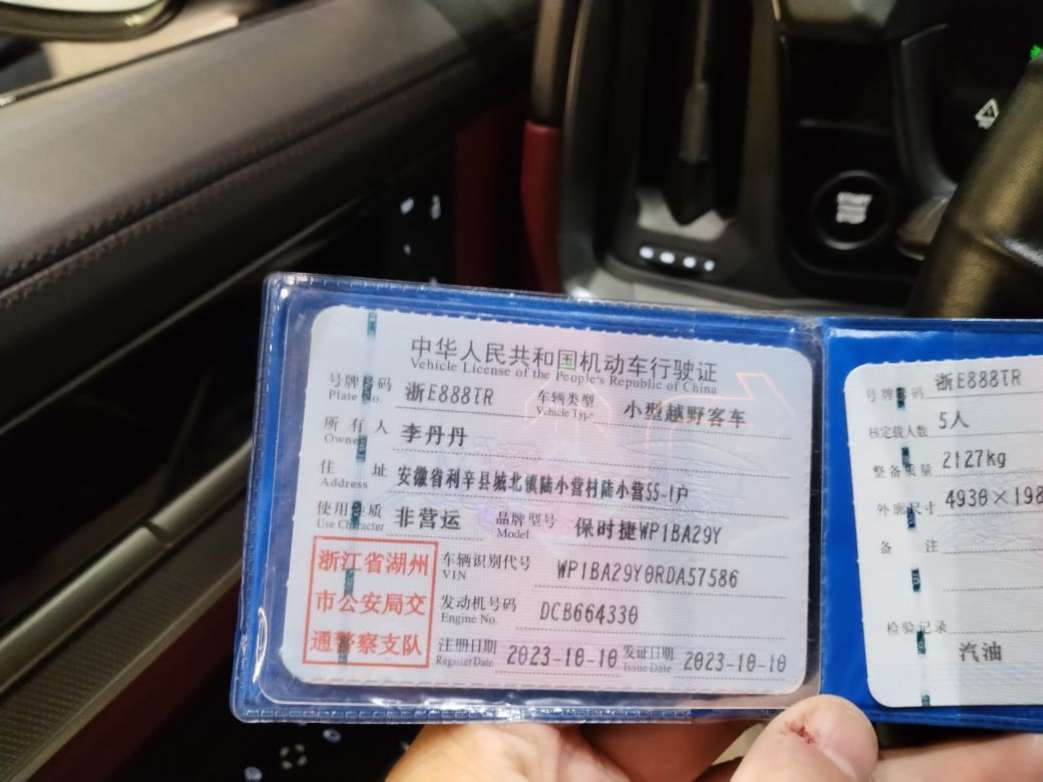 START
STOP
中华人民共和国机动车行驶证
Vehicle License of the People's Republic of China
号牌号码 浙E888TR 车辆类型 小型越野客车
Plate No. Vehicle Type
所有人 李丹丹
Owner
住址 安徽省利辛县城北镇陆小营村陆小营55-1户
Address
使用性质 非营运 品牌型号 保时捷WP1BA29Y
Use Character Model
浙江省湖州
市公安局交
通警察支队
车辆识别代号 WP1BA29Y0RDA57586
VIN
发动机号码 DCB664330
Engine No.
注册日期 2023-10-10 发证日期 2023-10-10
Register Date Issue Date
号牌号码 浙E888TR
核定载人数 5人
整备质量 2127kg
外廓尺寸 4930×198
备注
检验记录
汽油